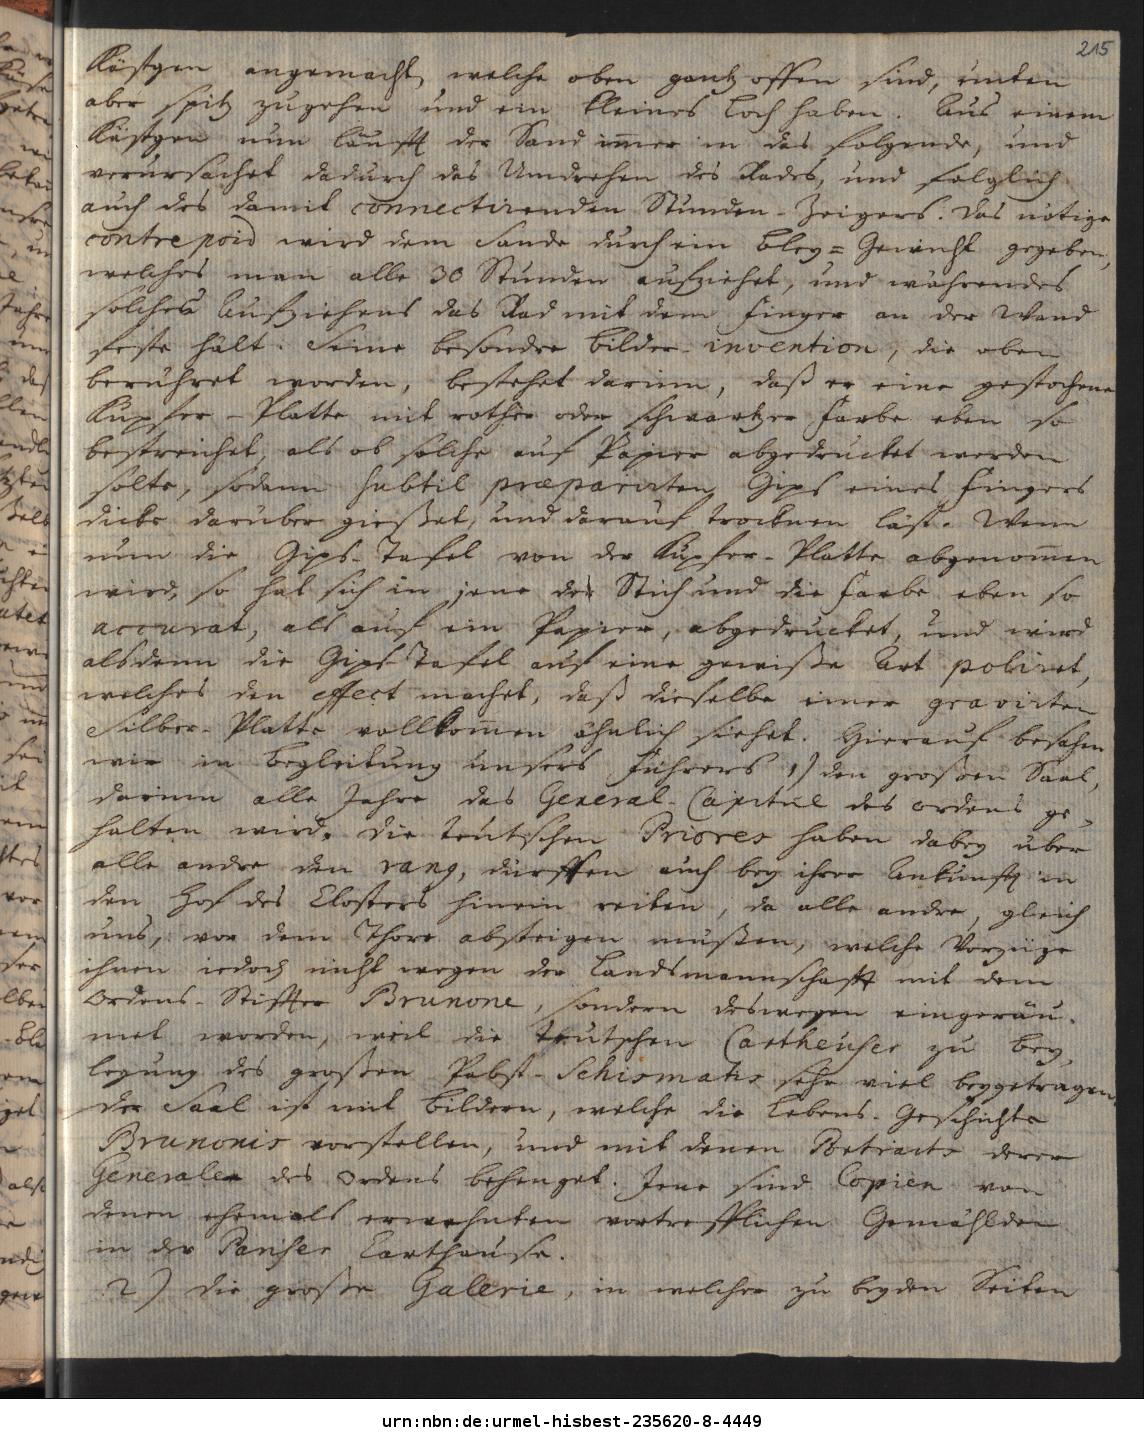 215
Kästgen angemacht, welche oben gantz offen sind, unten
aber spitz zugehen und ein kleines Loch haben. Aus einem
Kästgen nun läufft der Sand im̅er in das folgende, und
verursachet dadurch das Umdrehen des Rades, und folglich
auch des damit connectirenden Stunden-Zeigers. Das nötige
contrepoid wird dem Sande durch ein Bley=Gewicht gegeben,
welches man alle 30 Stunden aufziehet, und währendes
solches Aufziehens das Rad mit dem Finger an der Wand
feste hält. Seine besondre Bilder-invention, die oben
berühret worden, bestehet darinn, daß er eine gestochene
Kupfer-Platte mit rother oder schwartzer Farbe eben so
bestreichet, als ob solche auf Papier abgedrucket werden
solte, sodann subtil præparirten Gips eines Fingers
dicke darüber gießet, und darauf trocknen läst. Wenn
nun die Gips-Tafel von der Kupfer-Platte abgenom̅en
wird, so hat sich in jene der Stich und die Farbe eben so
accurat, als auf ein Papier, abgedrucket, und wird
alsdenn die Gips Tafel auf eine gewiße Art poliret,
welches den effect machet, daß dieselbe einer gravirten
Silber-Platte vollkom̅en ähnlich siehet. Hierauf besahen
wir in Begleitung unsers Führers 1) den großen Saal,
darinn alle Jahre das General-Capitul des Ordens ge-
halten wird. Die teutschen Priores haben dabey über
alle andre den rang, dürffen auch bey ihrer Ankunfft in
den Hof des Closters hinein reiten, da alle andre, gleich
uns, vor dem Thore absteigen müßen, welche Vorzüge
ihnen iedoch nicht wegen der Landsmannschafft mit dem
Ordens-Stiffter Brunone, sondern deswegen eingeräu-
met worden, weil die teutschen Cartheuser zu Bey-
legung des großen Pabst-Schismatis sehr viel beygetragen.
Der Saal ist mit Bildern, welche die Lebens-Geschichte
Brunonis vorstellen, und mit denen Portraits derer
Generale des Ordens behenget. Jene sind Copien von
denen ehemals erwehnten vortrefflichen Gemählden
in der Pariser Carthause.
2) die große Galerie, in welcher zu beyden Seiten
urn:nbn:de:urmel-hisbest-235620-8-4449